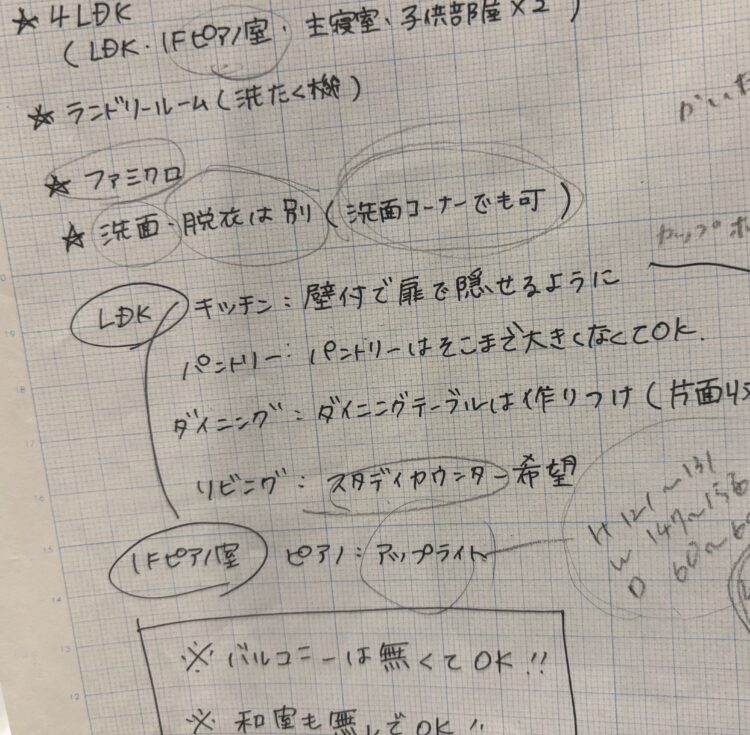 ★ 4LDK
(LDK・1Fピアノ室・主寝室、子供部屋×2)
★ ランドリールーム(洗たく機)
★ ファミクロ
★ 洗面・脱衣は別(洗面コーナーでも可)
LDK
キッチン:壁付で扉で隠せるように
パントリー:パントリーはそこまで大きくなくてOK.
ダイニング:ダイニングテーブルは作りつけ(片面4
リビング:スタディカウンター希望
1Fピアノ室 ピアノ:アップライト
H 121~131
W 147~156
D 60~6
※ バルコニーは無くてOK!!
※ 和室も無しでOK!!